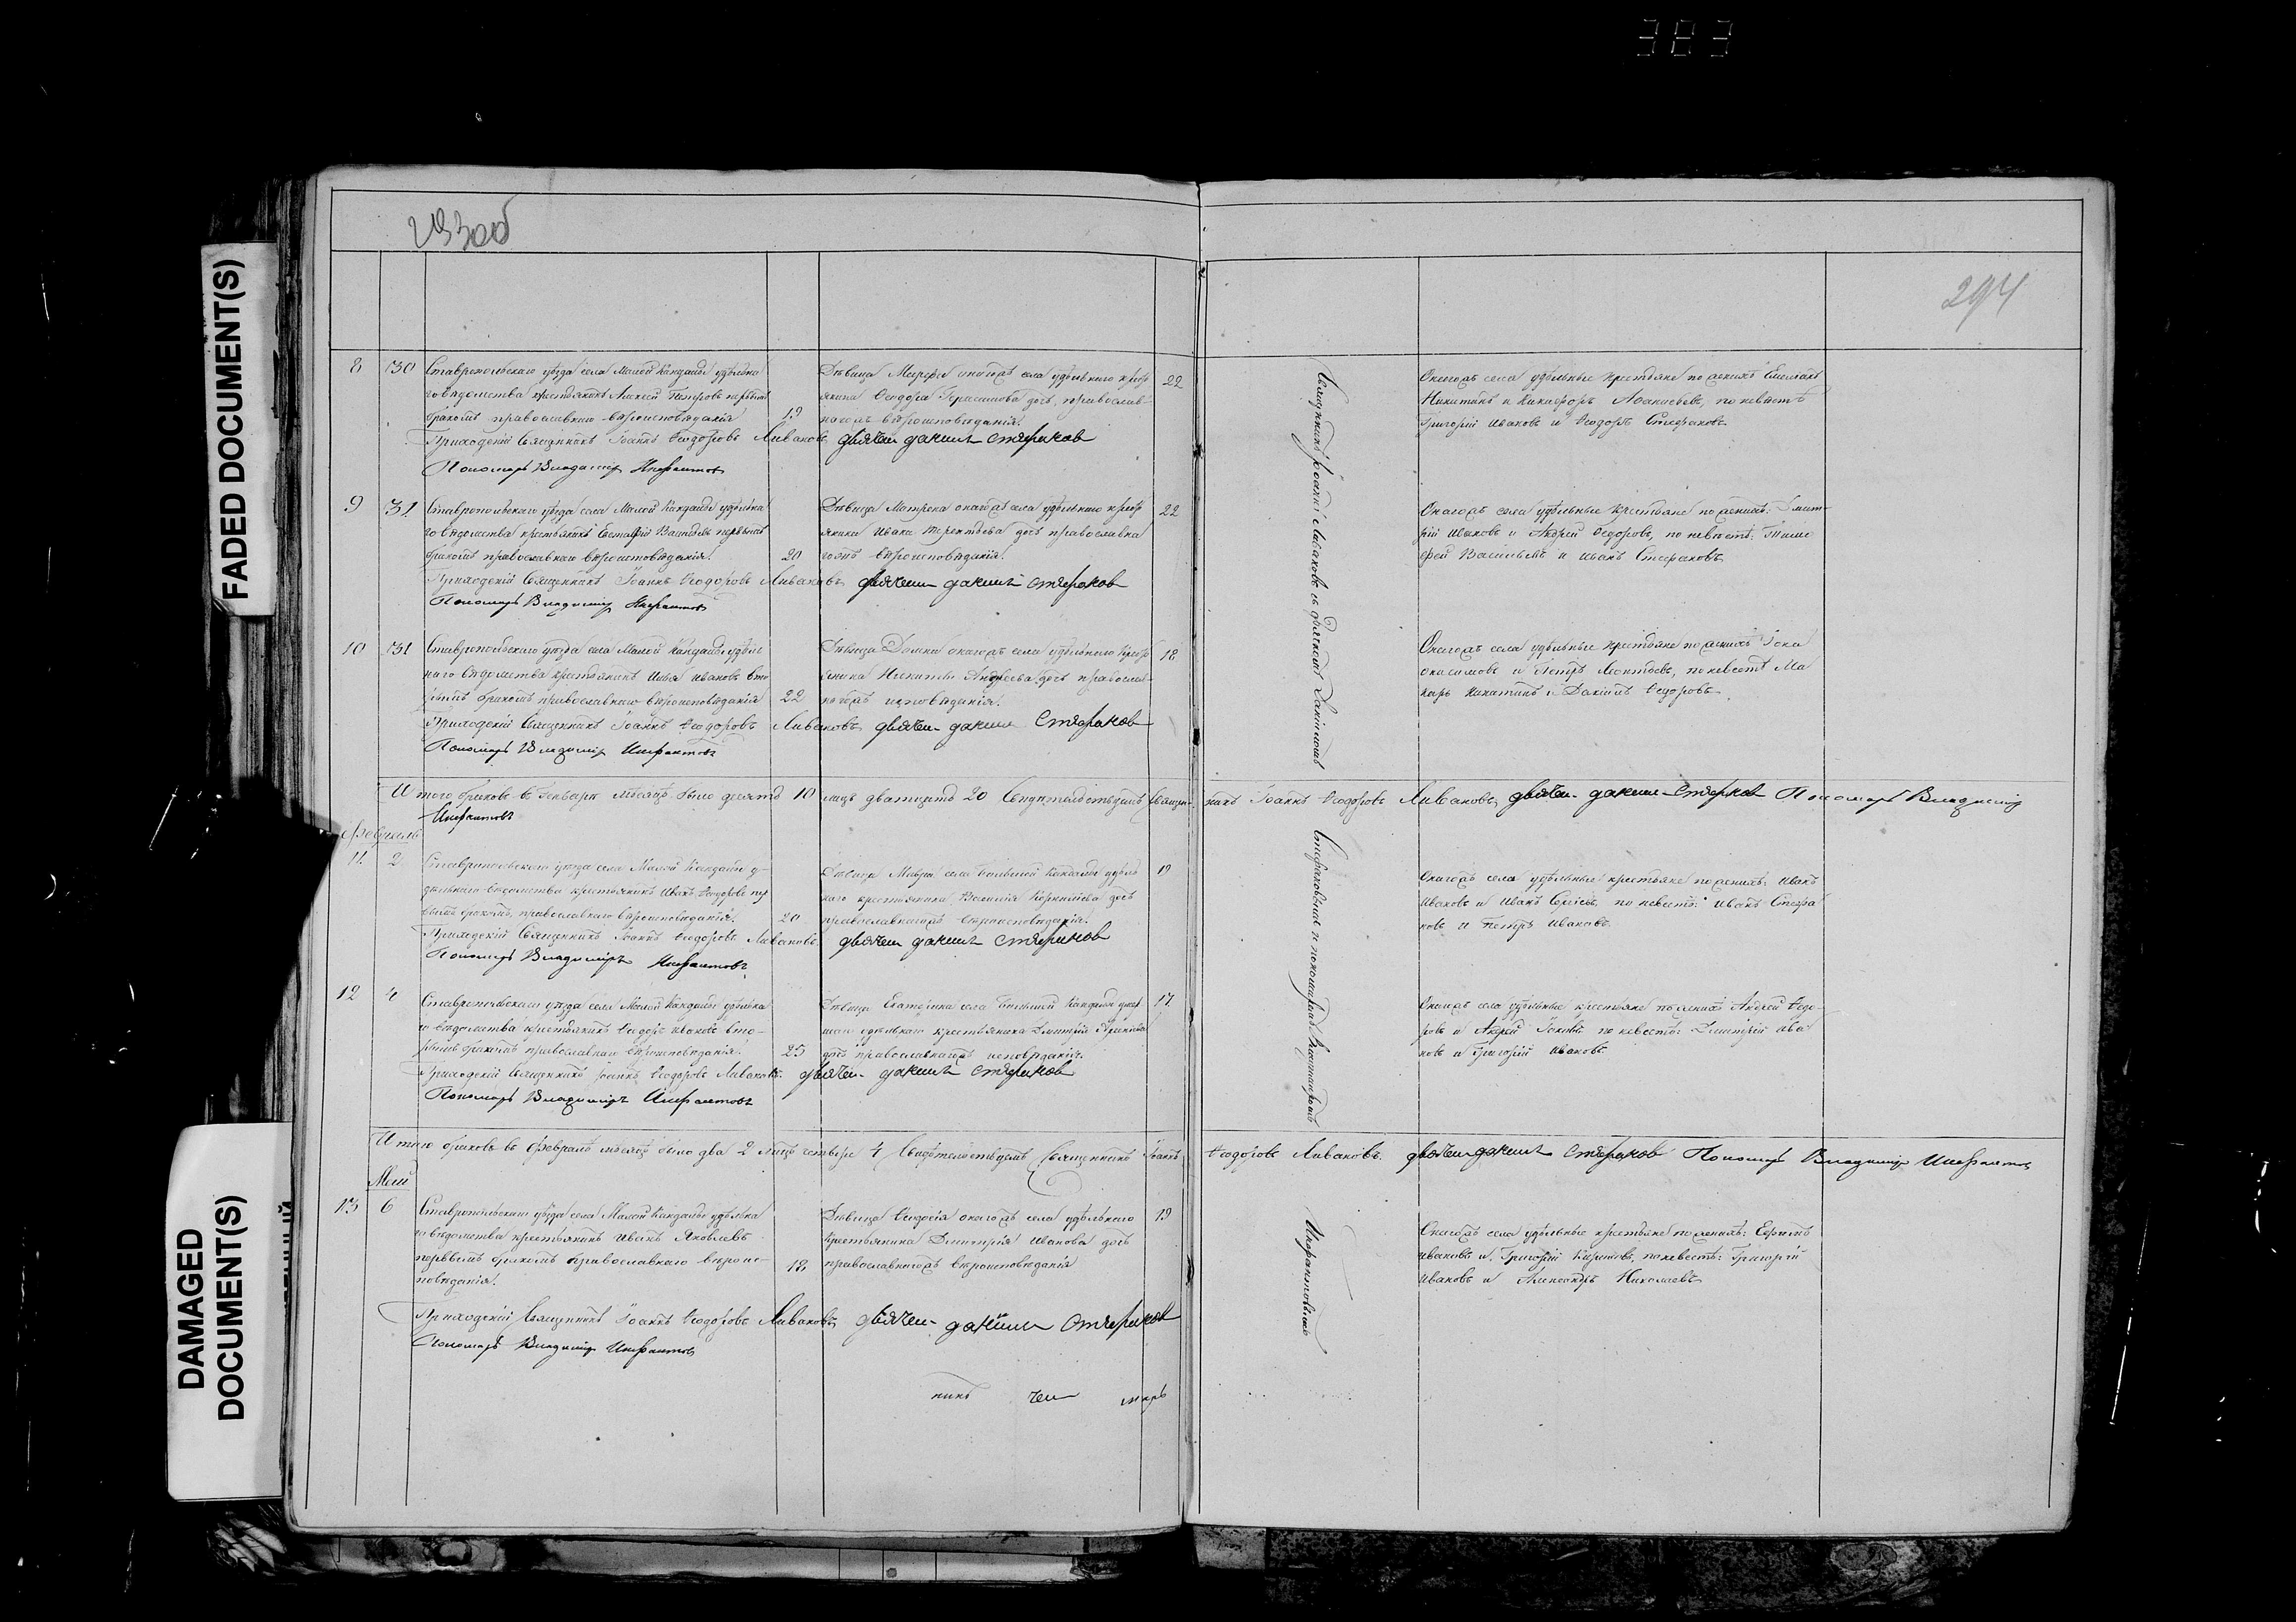 383
FADED DOCUMENT(S)
DAMAGED
DOCUMENT(S)
294
8 30 Ставропольскаго уѣзда села Малой Кандалы удѣльна
го вѣдомства крестьянинъ Алексей Петровъ первымъ
бракомъ православнаго вѣроисповѣданія 19
Дѣвица Марфа онагожъ села удѣльнаго крест
янина Ѳеодора Герасимова дочь, православ-
нагожъ вѣроисповѣданія. 22
Онагожъ села удѣльные крестьяне по женихѣ Емельянъ
Никитинъ и Никифоръ Афанасьевъ, по невѣстѣ
Григорій Ивановъ и Ѳеодоръ Стефановъ
Приходскій Священникъ Іоаннъ Ѳеодоровъ Ливановъ дьячекъ Стефанов
Пономарь Владимір
9 31 Ставропольскаго уѣзда села Малой Кандалы удѣльна
го вѣдомства крестьянинъ Евстафій Васильевъ первымъ
бракомъ православнаго вѣроисповѣданія. 20
Дѣвица Матрена онагожъ села удѣльнаго крест
янина Ивана Терентьева дочь православна
гожъ вѣроисповѣданія. 22
Онагожъ села удѣльные крестьяне по женихѣ: Дмит-
рій Ивановъ и Андрей Ѳедоровъ, по невѣстѣ: Тимо
фей Васильевъ и Иванъ Стефановъ
Приходскій Священникъ Іоаннъ Ѳеодоровъ Ливановъ дьячекъ Стефанов
Пономарь Владимір
10 31 Ставропольскаго уѣзда села Малой Кандалы удѣль
наго вѣдомства крестьянинъ Илья Ивановъ вто
рымъ бракомъ православнаго вѣроисповѣданія 22
Дѣвица Домна онагожъ села удѣльнаго крест
янина Никиты Андреева дочь православ-
нагожъ исповѣданія. 18
Онагожъ села удѣльные крестьяне по женихѣ
и Петръ Леонтьевъ, по невѣстѣ Ма
каръ Никитинъ и Ѳедоровъ
Приходскій Священникъ Іоаннъ Ѳеодоровъ Ливановъ дьячек Стефанов
Пономарь Владимір Инфантовъ
Итого браковъ въ Генварѣ мѣсяцѣ было десять 10 лицъ дватцать 20 Священникъ Іоаннъ Ѳеодоровъ Ливановъ дьячек Стефанов Пономарь Владимір
Инфантовъ
Февраль
11 2 Ставропольскаго уѣзда села Малой Кандалы у-
дѣльнаго вѣдомства крестьянинъ Иванъ Ѳеодоровъ пер
вымъ бракомъ, православнаго вѣроисповѣданія. 20
Дѣвица Мавра села Большой Кандалы удѣль
наго крестьянина Василія Корнилова дочь
православнагожъ вѣроисповѣданія. 19
Онагожъ села удѣльные крестьяне по женихѣ: Иванъ
Ивановъ и Иванъ Сергѣевъ, по невѣстѣ: Иванъ Стефа
новъ и Петръ Ивановъ
Приходскій Священникъ Іоаннъ Ѳеодоровъ Ливановъ дьячек Стефанов
Пономарь Владиміръ Инфантовъ
12 4 Ставропольскаго уѣзда села Малой Кандалы удѣльна
го вѣдомства крестьянинъ Ѳеодоръ Ивановъ вто-
рымъ бракомъ православнаго вѣроисповѣданія. 25
Дѣвица Екатерина села Большой Кандалы
удѣльнаго крестьянина Дмитрія
дочь православнагожъ исповѣданія. 17
Онагожъ села удѣльные крестьяне по женихѣ Андрей Ѳедо-
ровъ и Андрей по невѣстѣ: Дмитрій Ива
новъ и Григорій Ивановъ
Приходскій Священникъ Іоаннъ Ѳеодоровъ Ливановъ дьячек Стефанов
Пономарь Владиміръ Инфантовъ
Итого браковъ въ Февралѣ мѣсяцѣ было два 2 лицъ четыре 4 Свидѣтельствуемъ Священникъ Іоаннъ Ѳеодоровъ Ливановъ. дьячек Стефанов Пономарь Владиміръ Инфантов
Май
13 6 Ставропольскаго уѣзда села Малой Кандалы удѣльна
го вѣдомства крестьянинъ Иванъ Яковлевъ
первымъ бракомъ православнаго вѣроис-
повѣданія. 18
Дѣвица Ѳеодосія онагожъ села удѣльнаго
крестьянина Дмитрія Иванова дочь
православнагожъ вѣроисповѣданія 19
Онагожъ села удѣльные крестьяне по женихѣ: Ефимъ
Ивановъ и Григорій Кириловъ, по невѣстѣ: Григорій
Ивановъ и Александръ Николаевъ
Приходскій Священникъ Іоаннъ Ѳеодоровъ Ливановъ дьячек Стефанов
Пономарь Владиміръ Инфантовъ
никъ чек марь
Священникъ Іоаннъ Ливановъ съ дьячкомъ
Стефановымъ и пономаремъ
Инфантовымъ